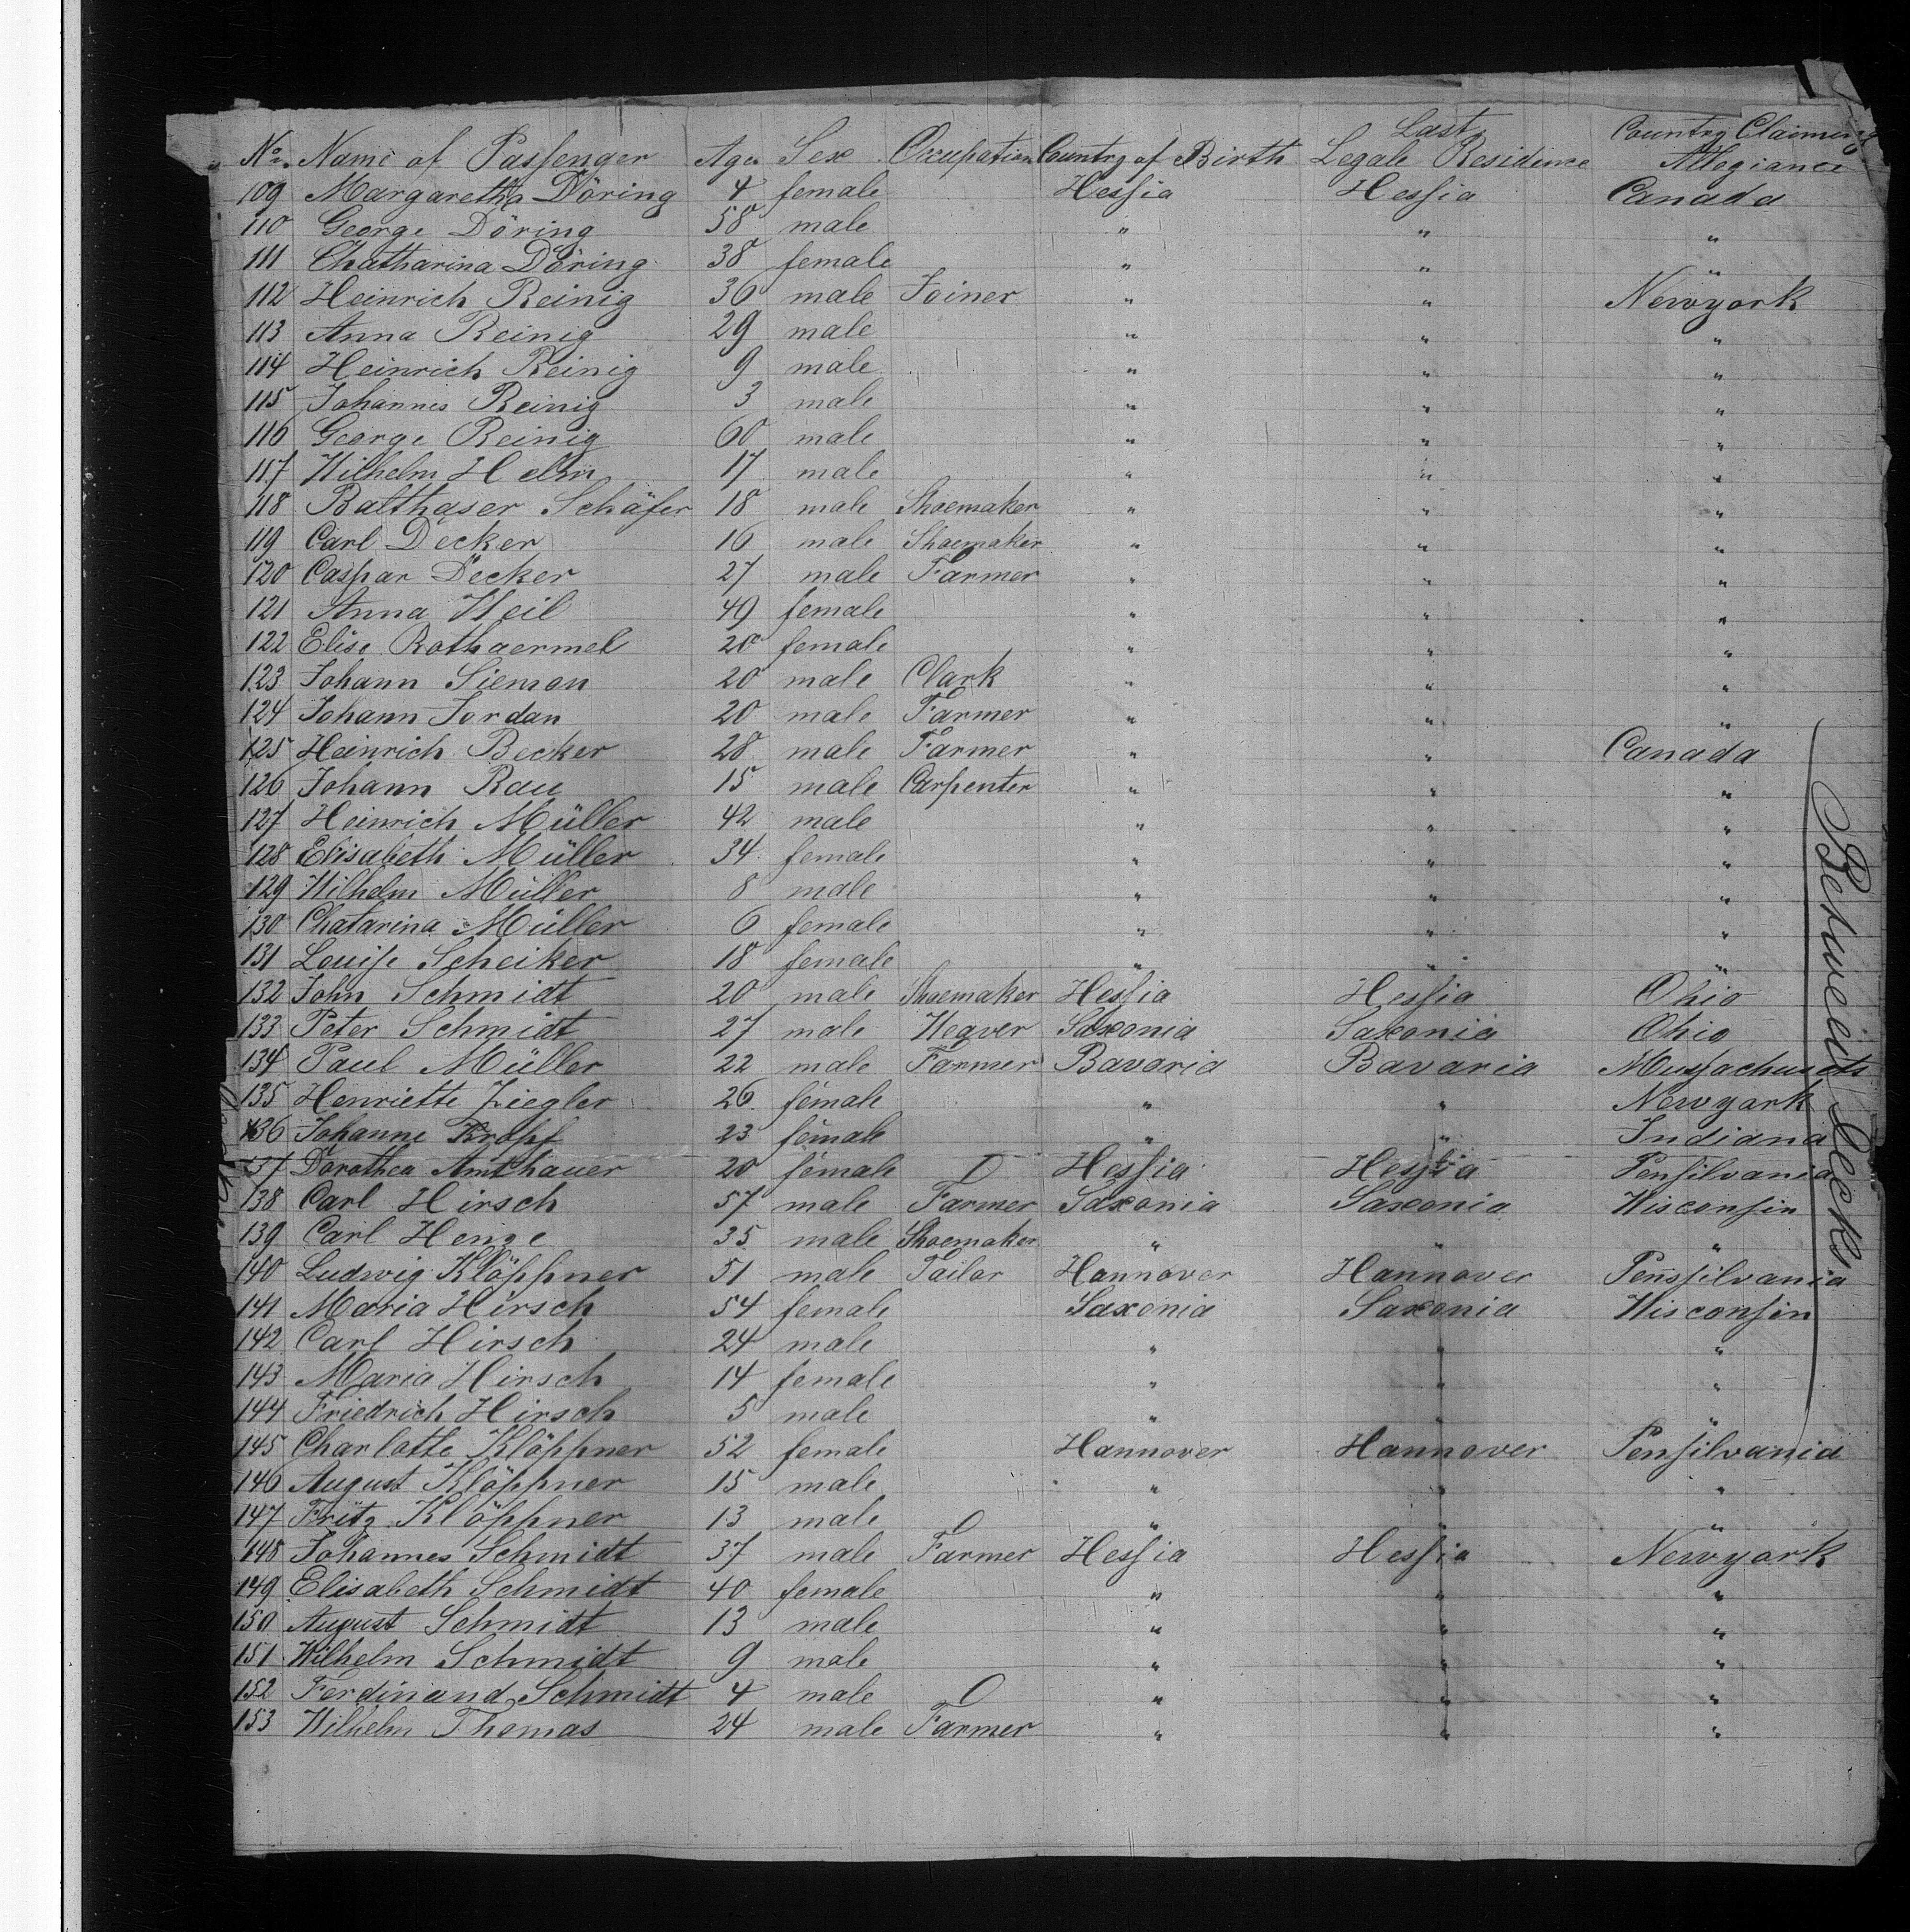 No. Name of Passenger Age Sex Occupation Country of Birth Last Legale Residence Country Claiming Allegiance
109 Margaretha Döring 4 female Hessia Hessia Canada
110 George Döring 58 male " " "
111 Chatharina Döring 38 female " " "
112 Heinrich Reinig 36 male Joiner " " Newyork
113 Anna Reinig 29 male " " "
114 Heinrich Reinig 9 male " " "
115 Johannes Reinig 3 male " " "
116 George Reinig 60 male " " "
117 Wilhelm Helm 17 male " " "
118 Balthaser Schäfer 18 male Shoemaker " " "
119 Carl Decker 16 male Shoemaker " " "
120 Caspar Decker 27 male Farmer " " "
121 Anna Weil 49 female " " "
122 Elise Rothaermel 20 female " " "
123 Johann Siemon 20 male Clark " " "
124 Johann Jordan 20 male Farmer " " "
125 Heinrich Becker 28 male Farmer " " Canada
126 Johann Rau 15 male Carpenter " " "
127 Heinrich Müller 42 male " " "
128 Elisabeth Müller 34 female " " "
129 Wilhelm Müller 8 male " " "
130 Chatarina Müller 6 female " " "
131 Louise Scheiker 18 female " " "
132 John Schmidt 20 male Shoemaker Hessia Hessia Ohio
133 Peter Schmidt 27 male Weaver Saxonia Saxonia Ohio
134 Paul Müller 22 male Farmer Bavaria Bavaria Massachusets
135 Henriette Ziegler 26 female " " Newyork
136 Johanne Kropf 23 female " " Indiana
137 Dorothea Amthauer 20 female Hessia Hessia Pensilvania
138 Carl Hirsch 57 male Farmer Saxonia Saxonia Wisconsin
139 Carl Henze 35 male Shoemaker " " "
140 Ludwig Klöppner 51 male Tailor Hannover Hannover Penssilvania
141 Maria Hirsch 54 female Saxonia Saxonia Wisconsin
142 Carl Hirsch 24 male " " "
143 Maria Hirsch 14 female " " "
144 Friedrich Hirsch 5 male " " "
145 Charlotte Klöppner 52 female Hannover Hannover Pensilvania
146 August Klöppner 15 male " " "
147 Fritz Klöppner 13 male " " "
148 Johannes Schmidt 37 male Farmer Hessia Hessia Newyork
149 Elisabeth Schmidt 40 female " " "
150 August Schmidt 13 male " " "
151 Wilhelm Schmidt 9 male " " "
152 Ferdinand Schmidt 4 male " " "
153 Wilhelm Thomas 24 male Farmer " " "
Betweein Decks